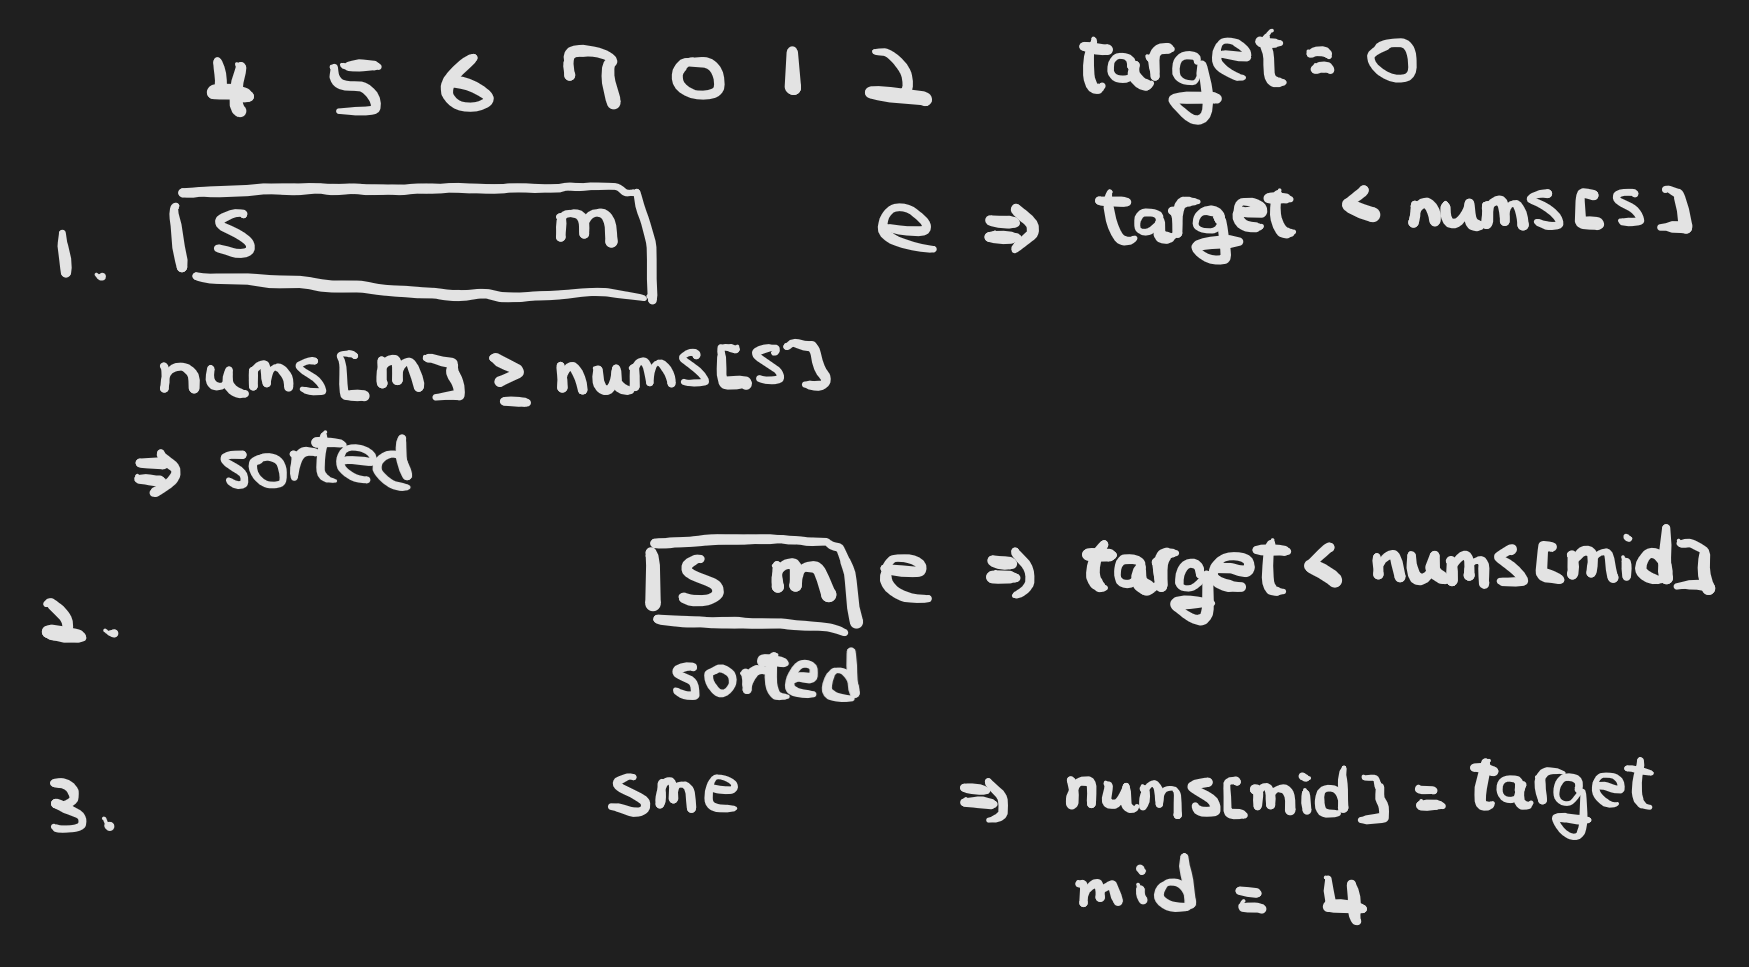 4 5 6 7 0 1 2 target = 0
1. s m e ⇒ target < nums[s]
nums[m] ≥ nums[s]
⇒ sorted
2. s m e ⇒ target < nums[mid]
sorted
3. sme ⇒ nums[mid] = target
mid = 4